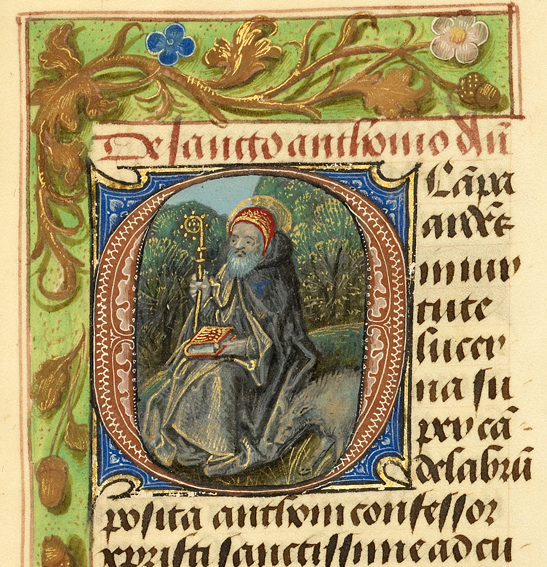 De sancto anthonio añ
O Lãpa
ardẽs
in vir
tute
lucer
na su
per cã
delabrũ
posita anthoni confessor
xpristi sanctissime ad cu